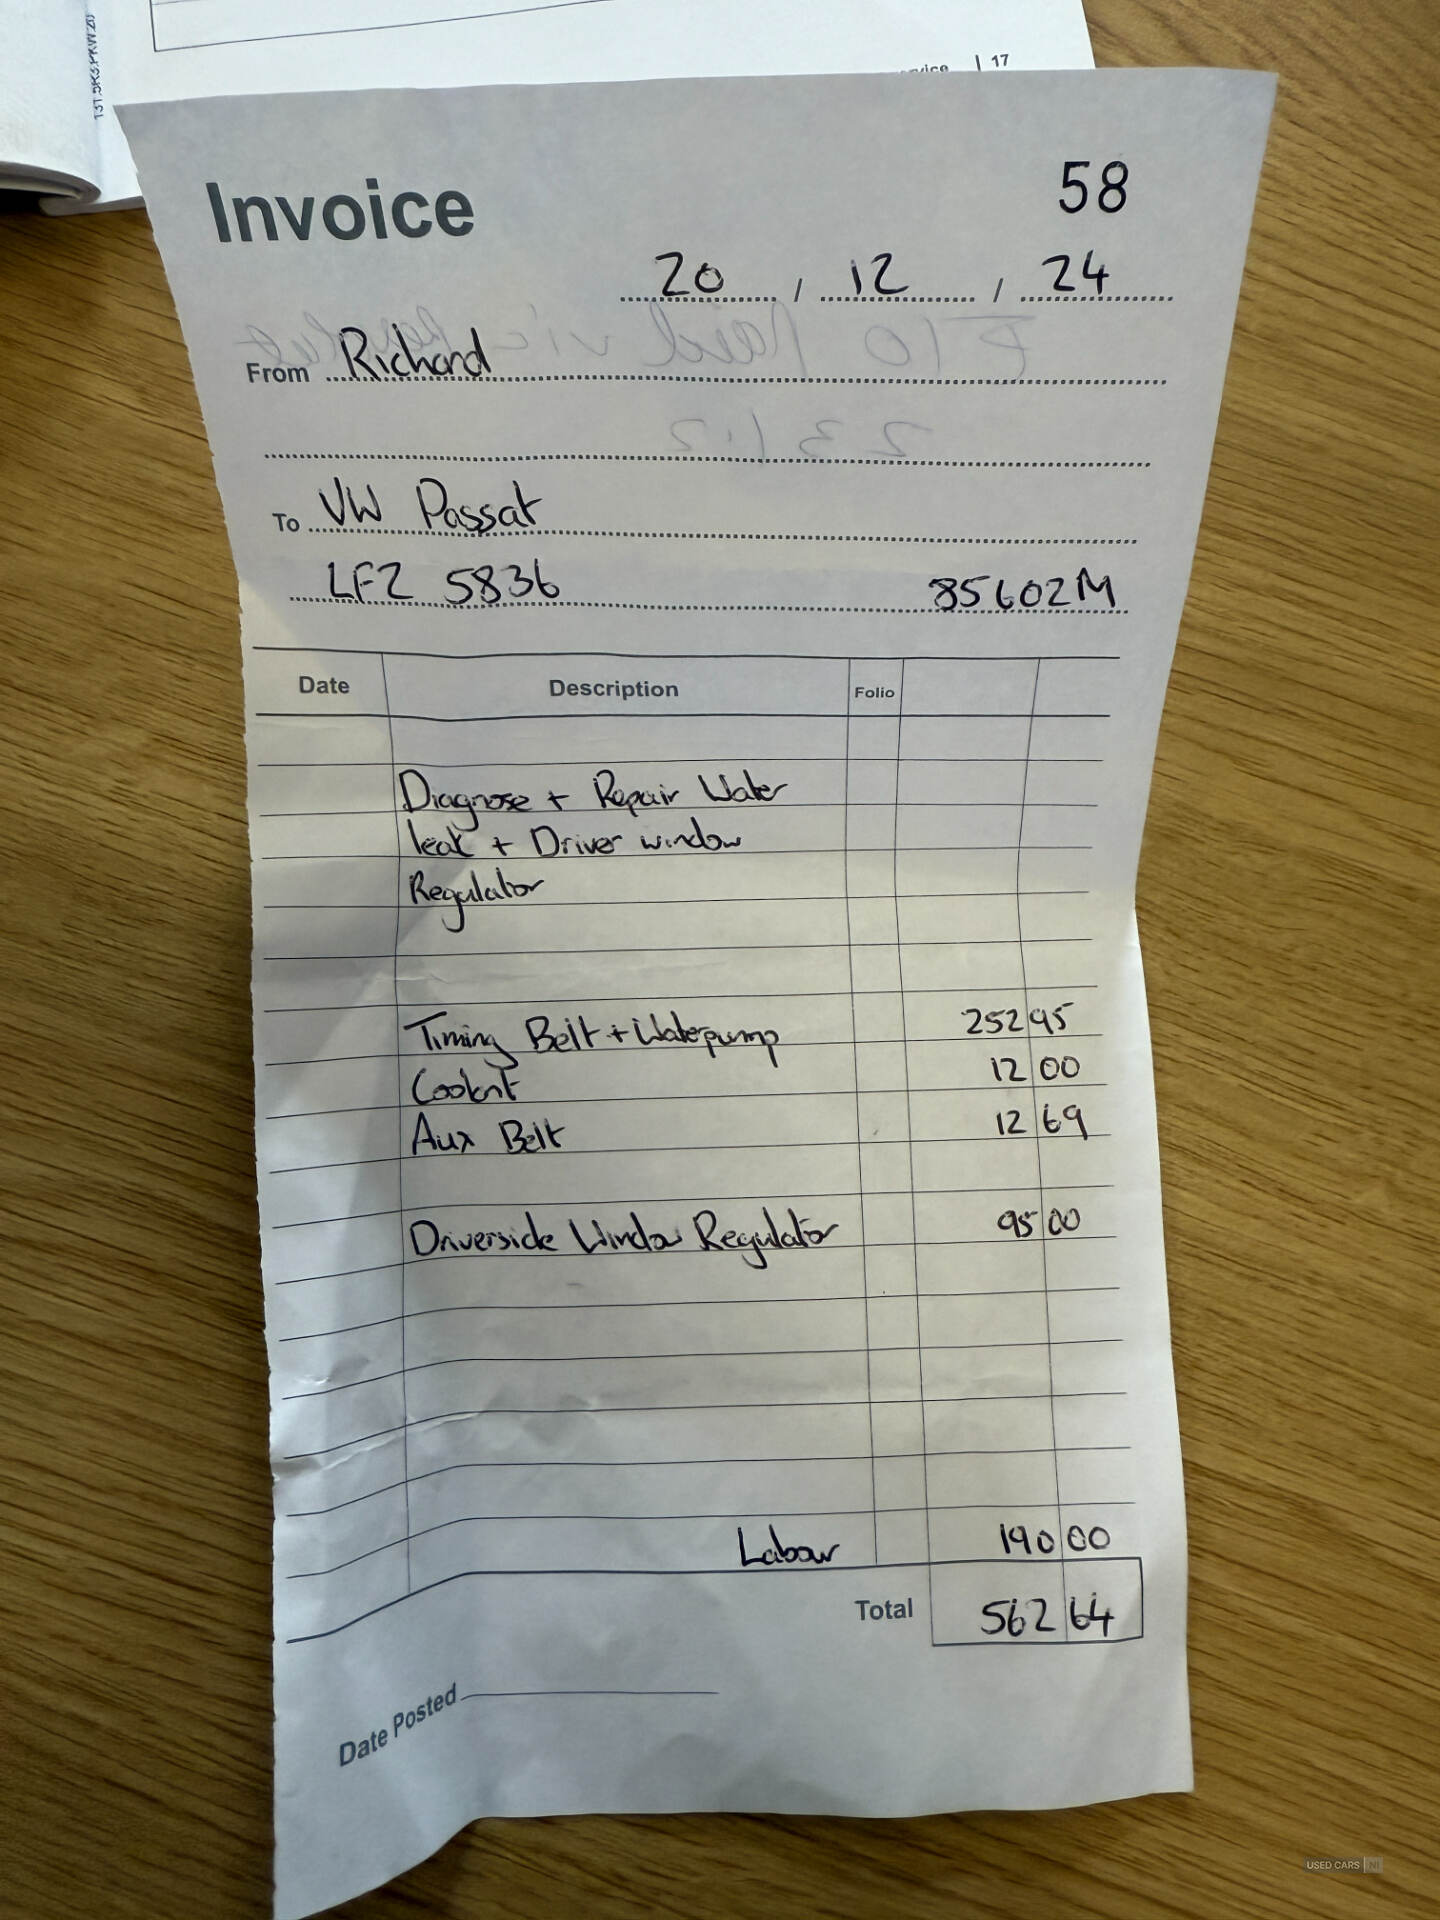 T31.5R3.PKW.20
17
Invoice
58
20 , 12 , 24
From Richard
To VW Passat
LFZ 5836 85602M
Date Description Folio
Diagnose + Repair Water
leak + Driver window
Regulator
Timing Belt + Waterpump 252 95
Coolant 12 00
Aux Belt 12 69
Driverside Window Regulator 95 00
Labour 190 00
Total 562 64
Date Posted
USED CARS NI